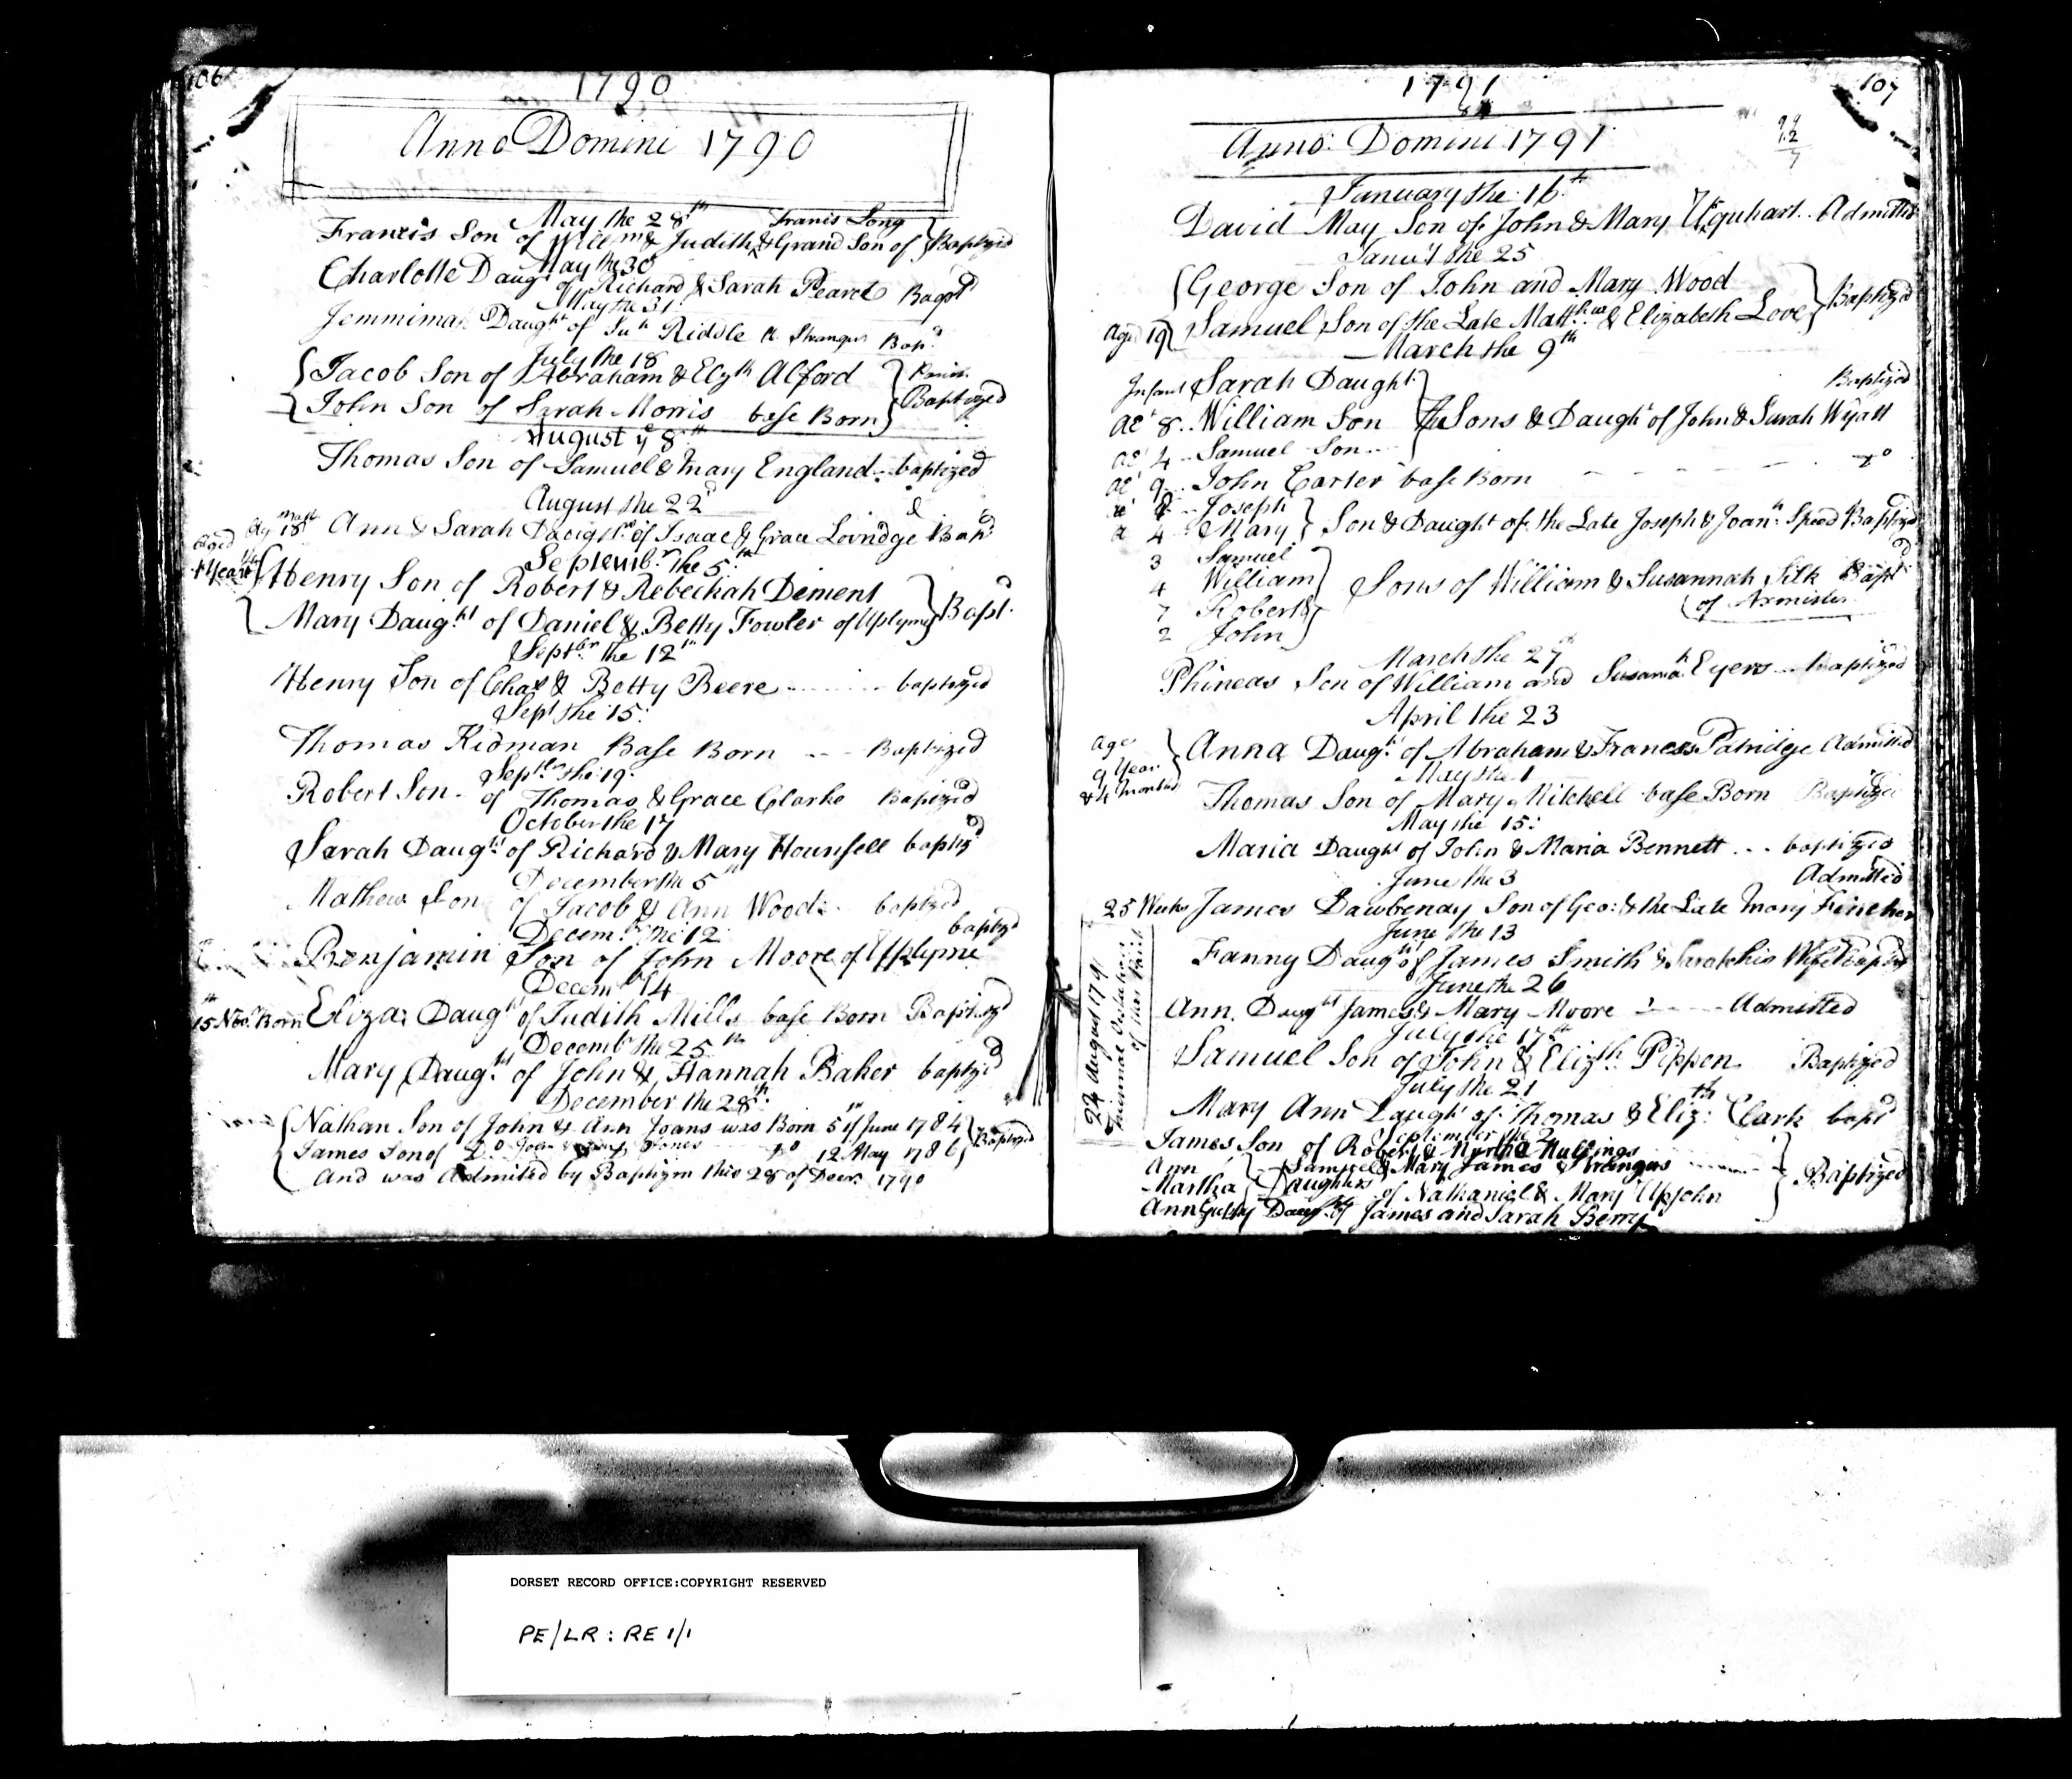 106
1790
Anno Domini 1790
May the 28th Franis Long
Francis Son of Willm & Judith & Grand Son of Baptzid
May the 30
Charlotte Daugt of Richard & Sarah Pearce Bapt
May the 31
Jemmima Daught of Riddle A Stranger Bapd
July the 18
Jacob Son of Abraham & Elyth Alford
John Son of Sarah Morris base Born Baptized
August ye 8th
Thomas Son of Samuel & Mary England baptized
August the 22d
Ag 18 Ann & Sarah Daughtrs of Isaac & Grace Lovridge Bapd
Septembr the 5th
Aged Year Henry Son of Robert & Rebeckah Dement
Mary Daught of Daniel & Betty Fowler of Uplyme Bapt
Septbr the 12th
Henry Son of Chas & Betty Beere baptized
Sept the 15
Thomas Kidman Base Born Baptized
Septr the 19
Robert Son of Thomas & Grace Clarke Baptized
October the 17
Sarah Daught of Richard & Mary Hounsell baptizd
December the 5th
Mathew Son of Jacob & Ann Wood baptzed
Decemr the 12 baptzd
Benjamin Son of John Moore of Upplyme
Decembr 14
15th Novr Born Eliza Daught of Judith Mills base Born Baptizd
Decembr the 25th
Mary Daught of John & Hannah Baker baptzd
December the 28th
Nathan Son of John & Ann Joans was Born 5th of June 1784
James Son of Do Do 12 May 1786 Baptized
And was Admited by Baptizm this 28 of Decr 1790
107
1791
Anno Domini 1791
99
12
January the 16th
David May Son of John & Mary Urquhart Admitted
Janury the 25
George Son of John and Mary Wood
Aged 19 Samuel Son of the Late Matthew & Elizabeth Love Baptized
March the 9th
Infant Sarah Daught Baptized
ae 8 William Son The Sons & Daught of John & Sarah Wyatt
ae 4 Samuel Son
ae 9 John Carter base Born Do
ae 8 Joseph
a 4 Mary Son & Daught of the Late Joseph & Joanh Speed Baptized
3 Samuel
4 William Sons of William & Susannah Silk Bapt
7 Robert & of Axminster
2 John
March the 27th
Phineas Son of William and Susanah Eyers baptized
April the 23
Age 9 Year & 4 Months Anna Daught of Abraham & Frances Patridge Admitted
May the 1
Thomas Son of Mary Mitchell base Born Baptize
May the 15
Maria Daught of John & Maria Bennett baptized
June the 3 Admitted
25 Weeks James Dawbenay Son of Geo: & the Late Mary Fincher
June the 13
Fanny Daught of James Smith & Sarah his Wife baptized
June the 26
Ann Daught James & Mary Moore Admitted
July the 17th
Samuel Son of John & Elizth Pippen Baptized
July the 21
Mary Ann Daught of Thomas & Elizth Clark bapt
September the 2
James Son of Robert & Myrtha Mullings
Samuel & Mary James Strangers
Ann
Martha Daughters of Nathaniel & Mary Upjohn Baptized
Ann Daught of James and Sarah Berry
22 August 1791
Triennial Visitation
of this Parish
DORSET RECORD OFFICE:COPYRIGHT RESERVED
PE/LR : RE 1/1